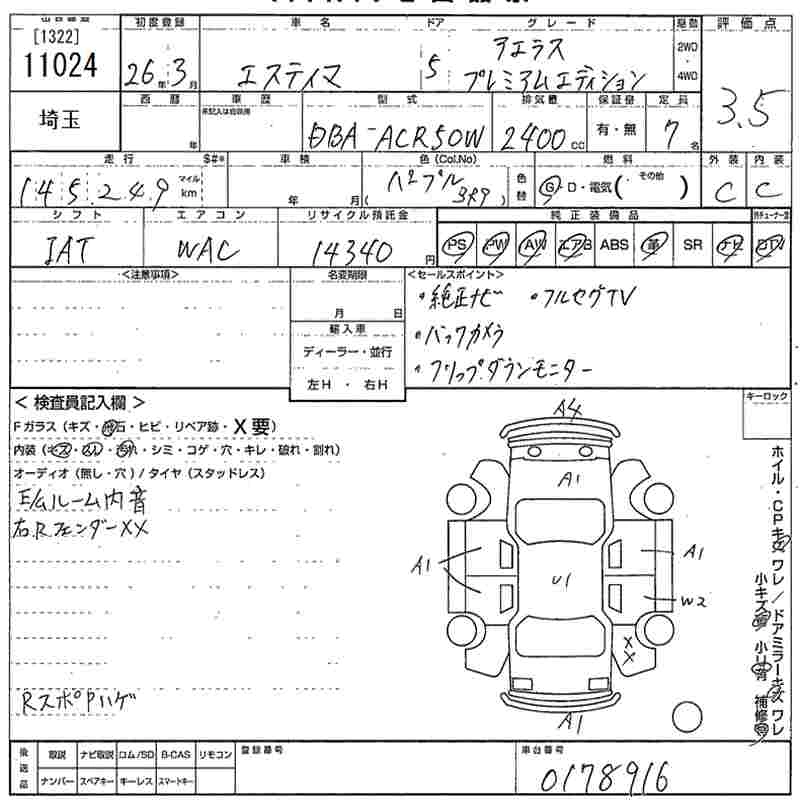 [1322]
11024
埼玉
初度登録
26年3月
車名
エスティマ
ドア
5
グレード
アエラス
プレミアムエディション
駆動
2WD
・
4WD
評価点
3.5
西暦
年
車歴
未記入は自家用
型式
DBA-ACR50W
排気量
2400cc
保証書
有・無
定員
7名
走行
145,249
マイル
km
S#※
車検
年 月
色(Col.No)
パープル
(3R9)
色替
燃料
G・D・電気( その他 )
外装
C
内装
C
シフト
IAT
エアコン
WAC
リサイクル預託金
14340円
純正装備品
PS PW AW エアB ABS 革 SR ナビ
＜注意事項＞
名変期限
月 日
輸入車
ディーラー・並行
左H・右H
＜セールスポイント＞
・純正ナビ ・フルセグTV
・バックカメラ
・フリップダウンモニター
＜検査員記入欄＞
Fガラス(キズ・飛石・ヒビ・リペア跡・X要)
内装(キズ・スレ・汚れ・シミ・コゲ・穴・キレ・破れ・割れ)
オーディオ(無し・穴)/タイヤ(スタッドレス)
E/Gルーム内音
右Rフェンダー XX
RスポPハゲ
キーロック
A4
A1
A1
A1
U1
W2
XX
A1
ホイル・CPキズ ワレ/ドアミラーキズ ワレ
後送品
取説 ナビ取説 ロム/SD B-CAS リモコン
ナンバー スペアキー キーレス スマートキー
登録番号
車台番号
0178916